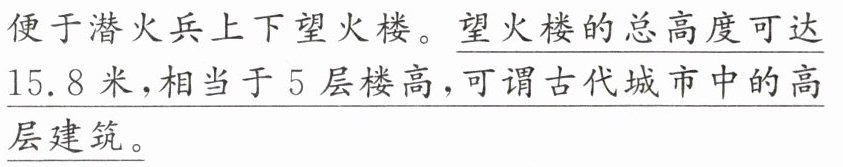 便于潜火兵上下望火楼。望火楼的总高度可达
15.8 米,相当于 5 层楼高,可谓古代城市中的高
层建筑。